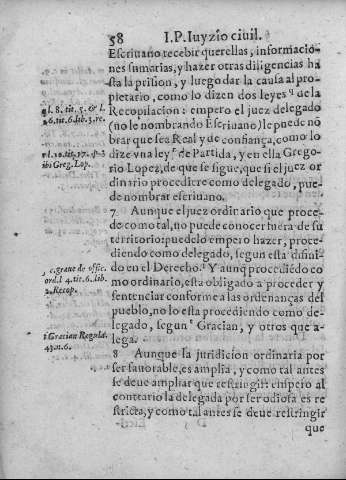 58 I.P. Iuyzio ciuil.
Escriuano recebir querellas, informacio-
nes sumarias, y hazer otras diligencias ha
sta la prision, y luego dar la causa al pro-
pietario, como lo dizen dos leyes q de la
Recopilacion: empero el juez delegado
(no le nombrando Escriuano) le puede nõ
brar que sea Real y de confiança, como lo
dize vna ley r de Partida, y en ella Grego-
rio Lopez, de que se sigue, que si el juez or
dinario procediere como delegado, pue-
de nombrar escriuano.
7 Aunque el juez ordinario que proce-
de como tal, no puede conocer fuera de su
territorio: puedelo empero hazer, proce-
diendo como delegado, segun esta difini-
do en el Derecho. s Y aunq procediẽdo co
mo ordinario, esta obligado a proceder y
sentenciar conforme a las ordenanças del
pueblo, no lo esta procediendo como de-
legado, segun t Gracian, y otros que a-
lega.
8 Aunque la juridicion ordinaria por
ser fauorable, es amplia, y como tal antes
se deue ampliar que restringir: empero al
contrario la delegada por ser odiosa es re
stricta, y como tal antes se deue restringir
que
q l. 8. tit. 5. & l.
16. tit. 6. lib. 3. re.
r l. 10. tit. 17. p. 3
ibi Greg. Lop.
s c. graue de offic.
ord. l 4. tit. 6. lib.
3. Recop.
t Gracian Regula.
43. n. 6.